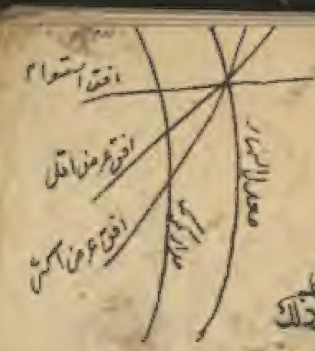 افق استواء
افق عرض اقل
افق عرض اکثر
مدار
معدل النهار
ذلك